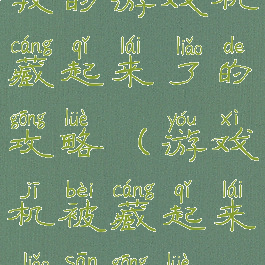 cáng qǐ lái liǎo de
藏起来了的
gōng lüè yóu xì
攻略(游戏
jī bèi cáng qǐ lái
机被藏起来